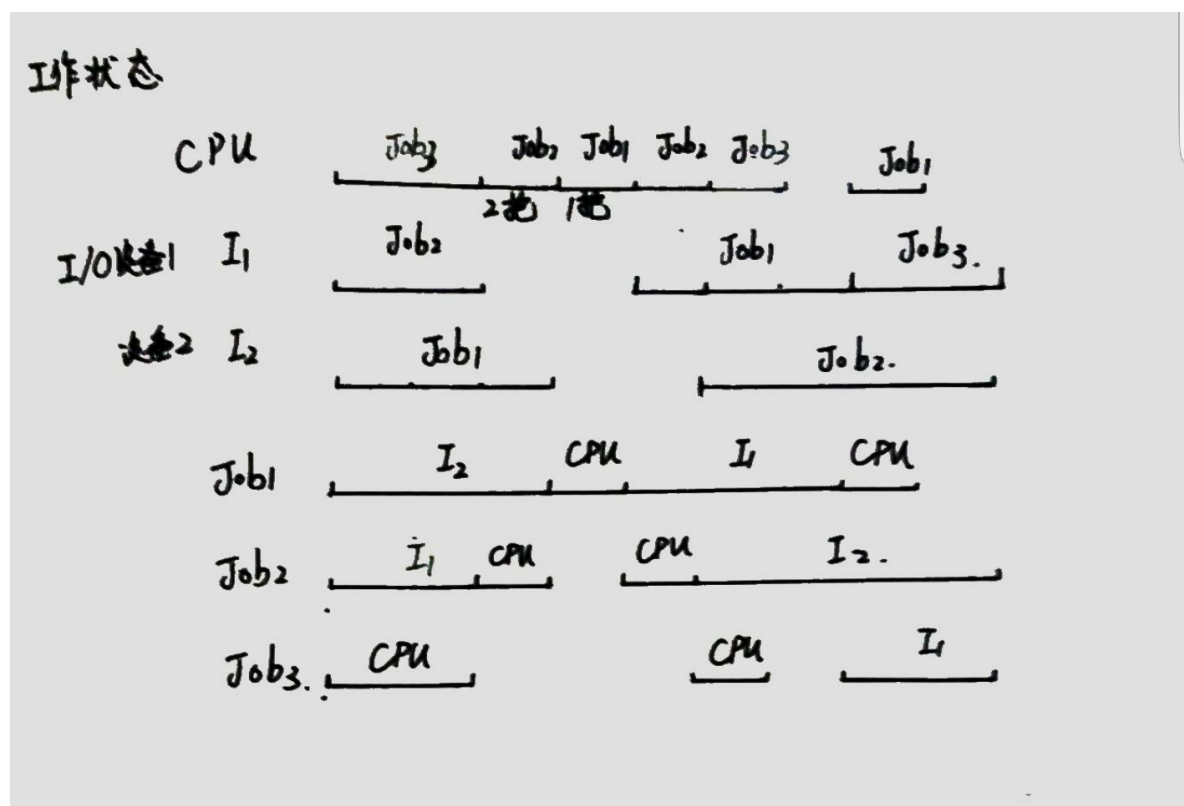 工作状态
CPU Job3 Job2 Job1 Job2 Job3 Job1
2抢 1抢
I/O设备1 I1 Job2 Job1 Job3.
设备2 I2 Job1 Job2.
Job1 I2 CPU I1 CPU
Job2 I1 CPU CPU I2.
Job3. CPU CPU I1